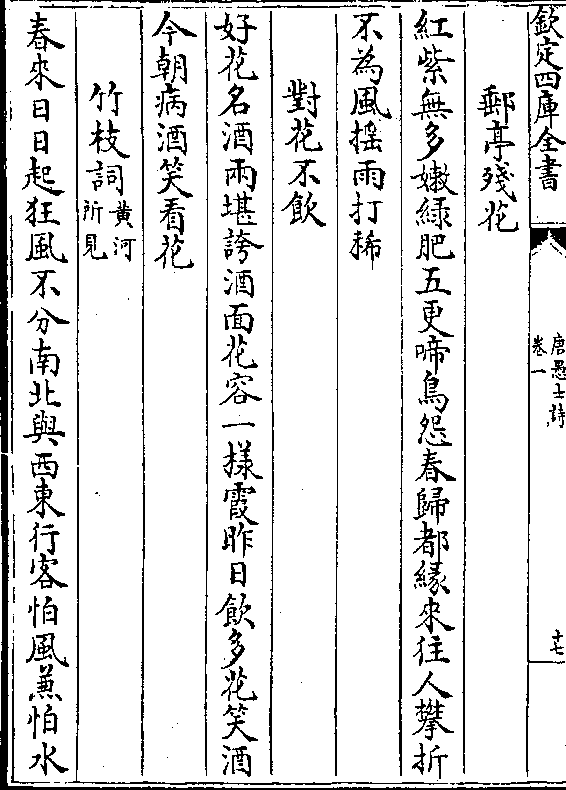 欽定四庫全書
唐愚士詩
卷一
十七
郵亭殘花
紅紫無多嫩緑肥五更啼鳥怨春歸都縁來往人攀折
不為風揺雨打稀
對花不飲
好花名酒兩堪誇酒面花容一様霞昨日飲多花笑酒
今朝病酒笑看花
竹枝詞黄河所見
春來日日起狂風不分南北與西東行客怕風兼怕水